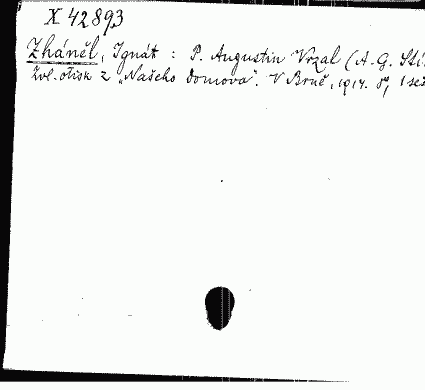 X 42893
Zháněl, Ignát : P. Augustin Vrzal (A. G. Stí
Zvl. otisk z „Našeho Domova". V Brně, 1914. 8°, 1 seš